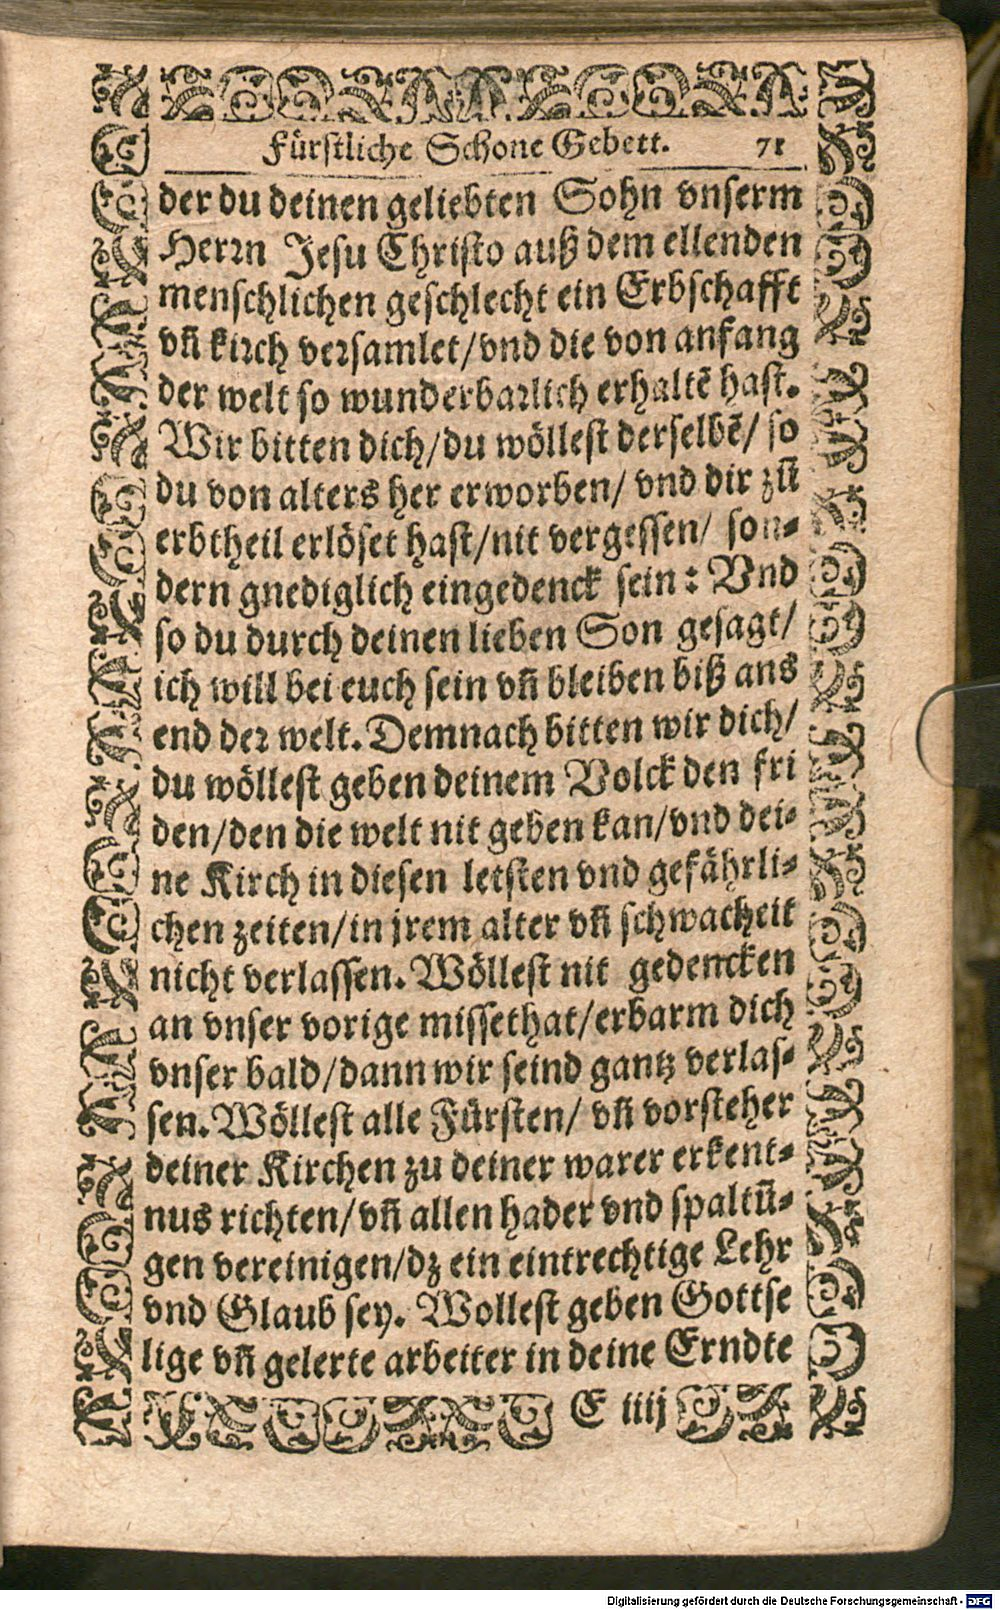 Fürstliche Schöne Gebett. 71
der du deinen geliebten Sohn vnserm
Herrn Jesu Christo auß dem ellenden
menschlichen geschlecht ein Erbschafft
vñ kirch versamlet/vnd die von anfang
der welt so wunderbarlich erhaltẽ hast.
Wir bitten dich/du wöllest derselbẽ/ so
du von alters her erworben/ vnd dir zů
erbtheil erlöset hast/nit vergessen/ son-
dern gnediglich eingedenck sein: Vnd
so du durch deinen lieben Son gesagt/
ich will bei euch sein vñ bleiben biß ans
end der welt. Demnach bitten wir dich/
du wöllest geben deinem Volck den fri
den/den die welt nit geben kan/vnd dei-
ne Kirch in diesen letsten vnd gefährli-
chen zeiten/in jrem alter vñ schwacheit
nicht verlassen. Wöllest nit gedencken
an vnser vorige missethat/erbarm dich
vnser bald/dann wir seind gantz verlas-
sen. Wöllest alle Fürsten/ vñ vorsteher
deiner Kirchen zu deiner warer erkent-
nus richten/vñ allen hader vnd spaltũ-
gen vereinigen/dz ein eintrechtige Lehr
vnd Glaub sey. Wollest geben Gottse
lige vñ gelerte arbeiter in deine Erndte
E iiij
Digitalisierung gefördert durch die Deutsche Forschungsgemeinschaft - DFG